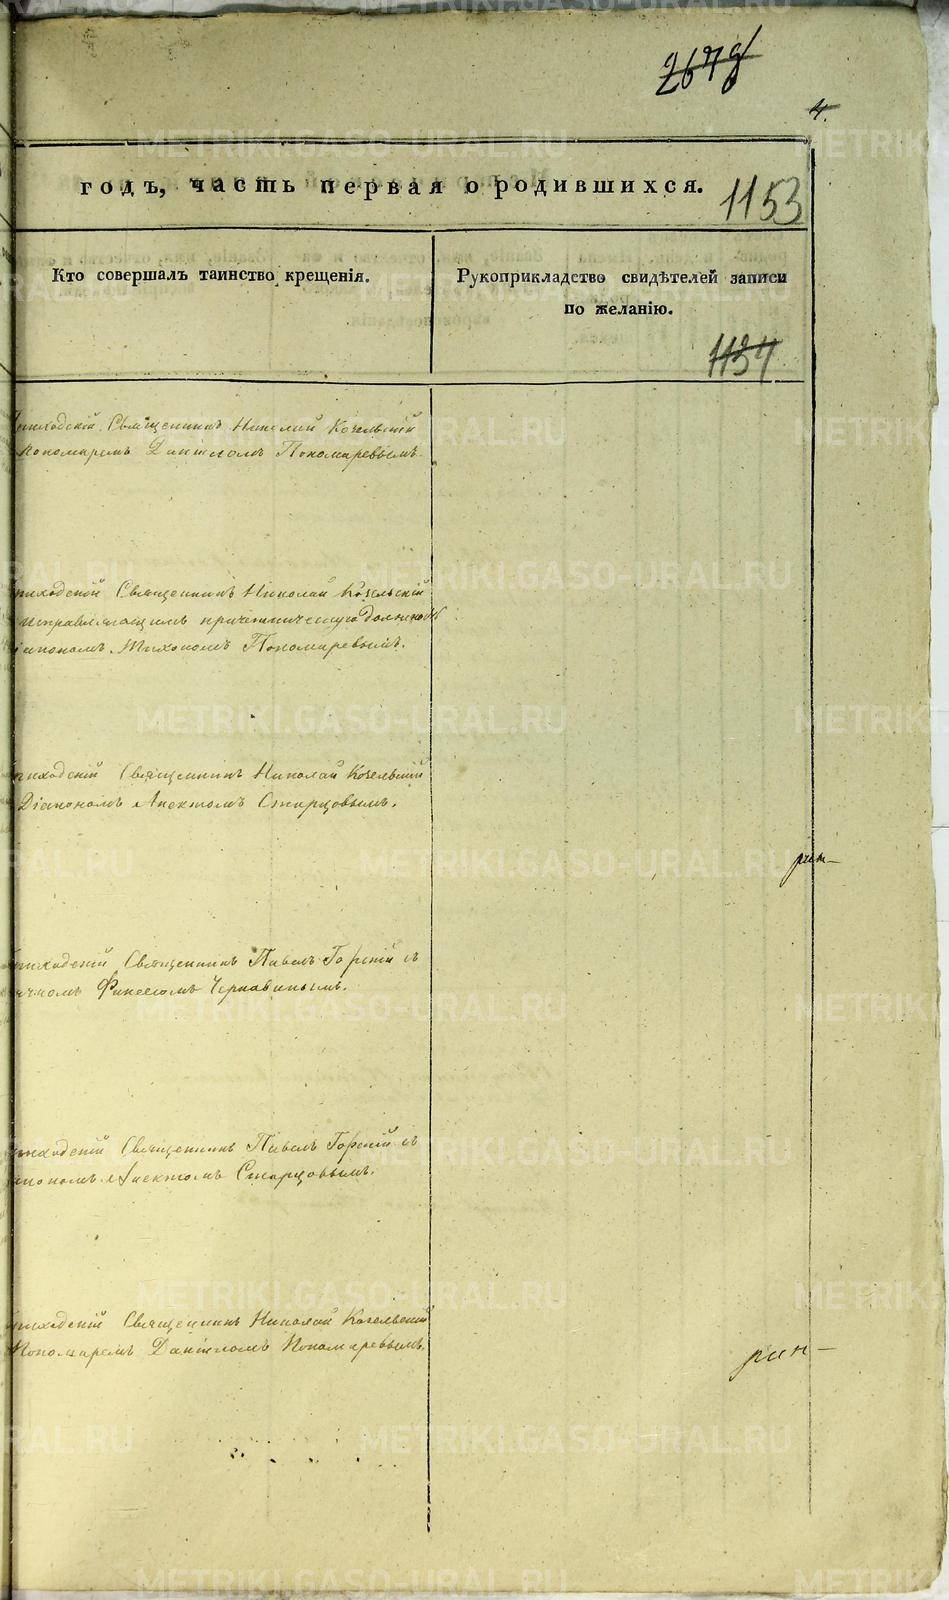 267
4.
годъ, часть первая о родившихся.
1153
Кто совершалъ таинство крещенія.
Рукоприкладство свидѣтелей записи
по желанію.
1134
Приходскій Священникъ Николай Козельскій
Пономаремъ Даніиломъ Пономаревымъ.
Приходскій Священникъ Николай Козельскій
исправляющимъ причетническую должность
Діакономъ Тихономъ Пономаревымъ.
Приходскій Священникъ Николай Козельскій
Діакономъ Анектомъ Старцовымъ.
Приходскій Священникъ Павелъ Горскій съ
Финеесомъ Чернавинымъ.
Приходскій Священникъ Павелъ Горскій съ
Діакономъ Анектомъ Старцовымъ.
Приходскій Священникъ Николай Козельскій
Пономаремъ Даніиломъ Пономаревымъ.
METRIKI.GASO-URAL.RU